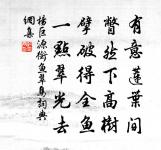 有意蓮葉間
瞥然下高樹
擘破得全魚
一點翠光去
楊巨源銜魚翠鳥詞典
網集